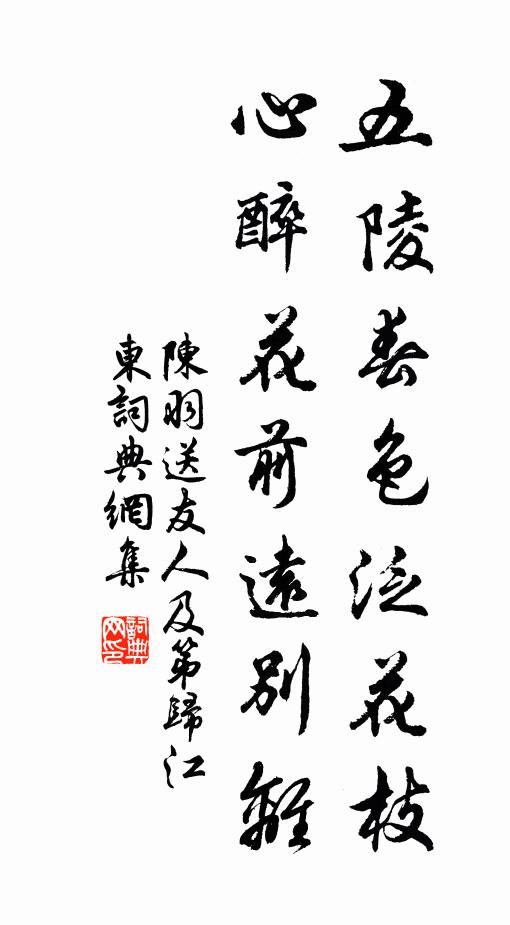 五陵春色泛花枝
心醉花前遠別離
陳羽送友人及第歸江
東詞典網集
詞典網印